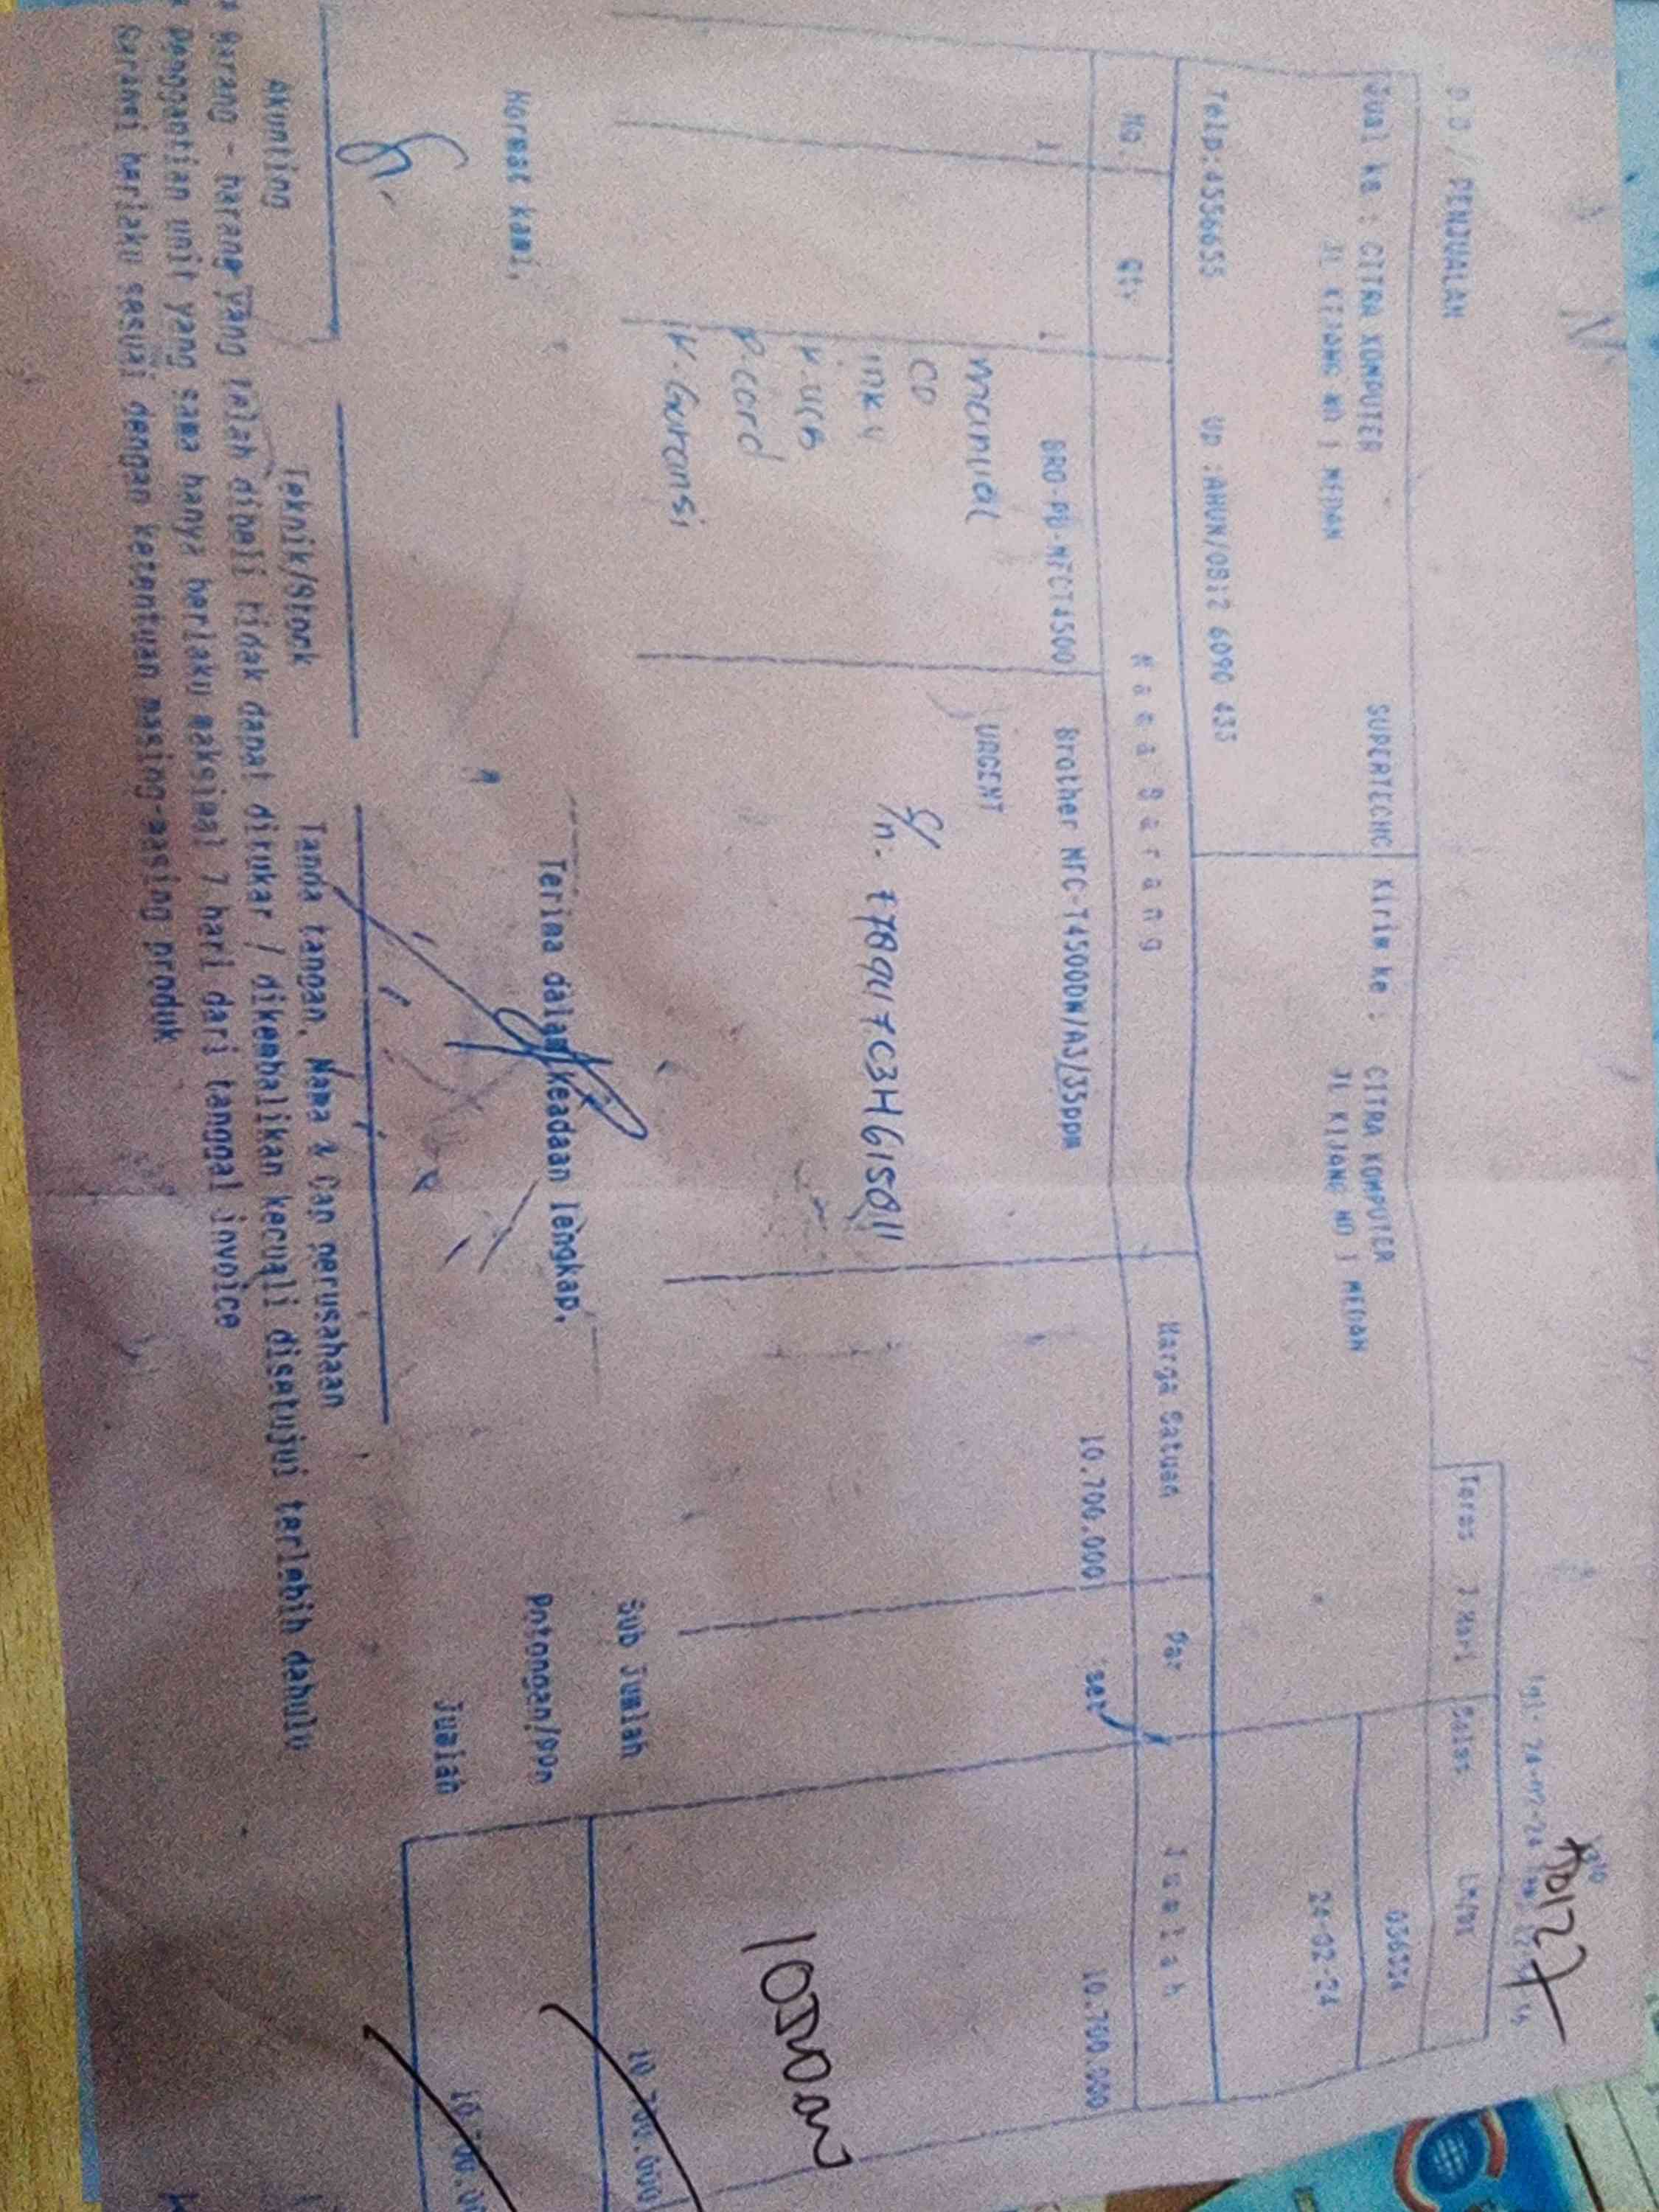 DO / PENJUALAN
Terms 7 Hari Sales
Jual ke : CITRA KOMPUTER SUPERTECHC Kirim ke : CITRA KOMPUTER 036534
JL KIJANG NO 1 MEDAN JL KIJANG NO 1 MEDAN 24-02-24
Telp:4556655 Up :AHUN/0812 6090 435
No. Qty Nama Barang Harga Satuan Per Jumlah
1 1 BRO-PB-MFCT4500 Brother MFC-T4500DW/A3/35ppm 10.700.000 set 10.700.000
manual URGENT
CD
ink 4 S/n.
K-USB
P.cord
K-Garansi
Sub Jumlah 10.700.000
Hormat kami, Terima dalam keadaan lengkap, Potongan/PPn
Jumlah
Akunting Teknik/Stock Tanda tangan, Nama & Cap perusahaan
* Barang - barang yang telah dibeli tidak dapat ditukar / dikembalikan kecuali disetujui terlebih dahulu
* Penggantian unit yang sama hanya berlaku maksimal 7 hari dari tanggal invoice
* Garansi berlaku sesuai dengan ketentuan masing-masing produk